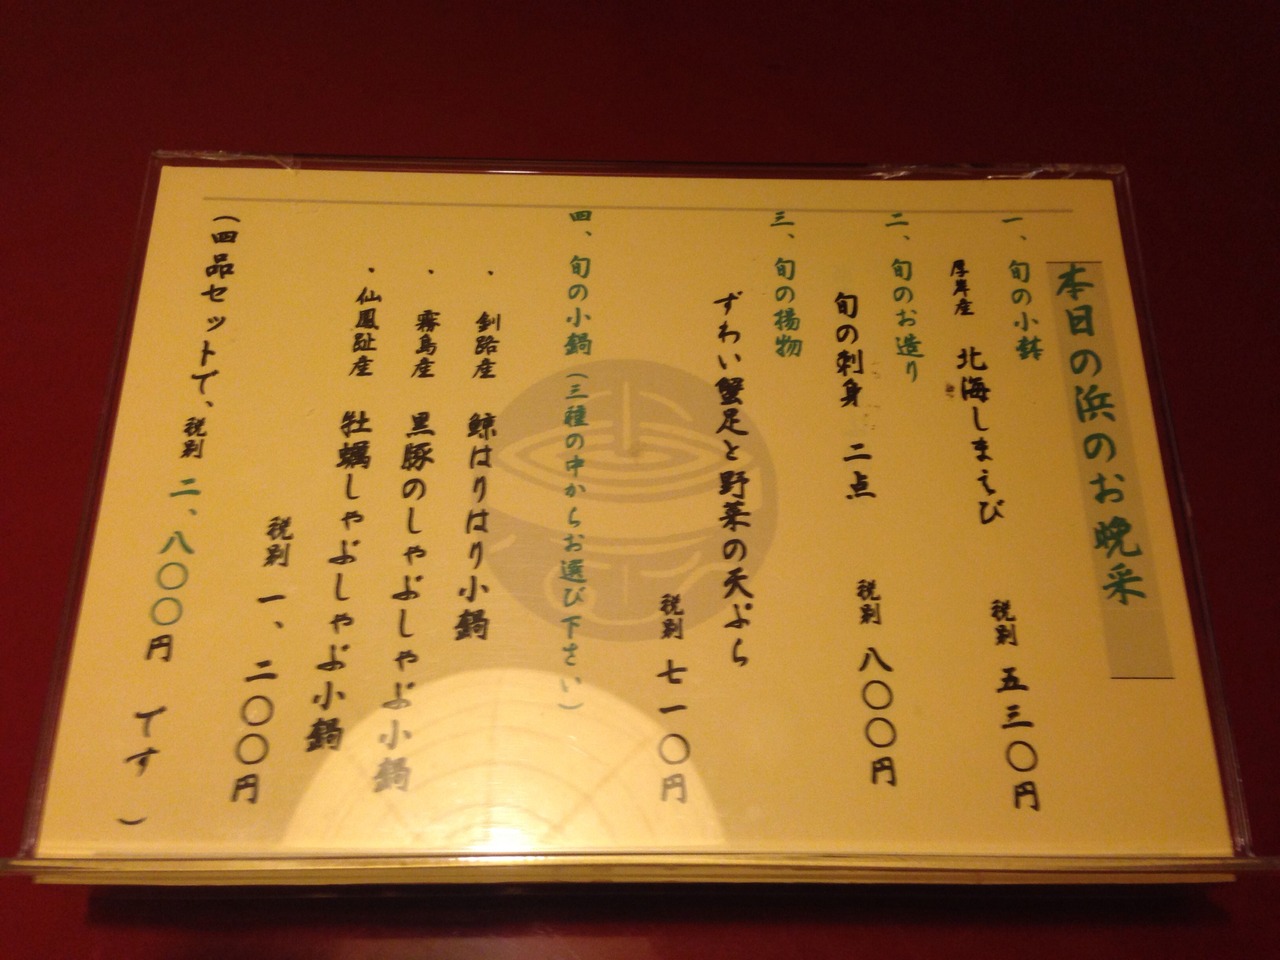 本日の浜のお晩采
一、旬の小鉢
厚岸産 北海しまえび
税別 五三〇円
二、旬のお造り
旬の刺身 二点
税別 八〇〇円
三、旬の揚物
ずわい蟹足と野菜の天ぷら
税別 七一〇円
四、旬の小鍋(三種の中からお選び下さい)
・釧路産 鯨はりはり小鍋
・霧島産 黒豚のしゃぶしゃぶ小鍋
・仙鳳趾産 牡蠣しゃぶしゃぶ小鍋
税別 一、二〇〇円
(四品セットで、税別 二、八〇〇円 です)